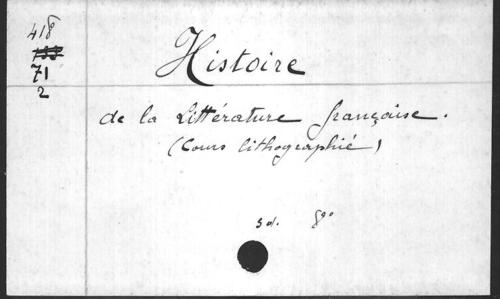 418
71
2
Histoire
de la Littérature française.
(Cours lithographié)
s d. 8°